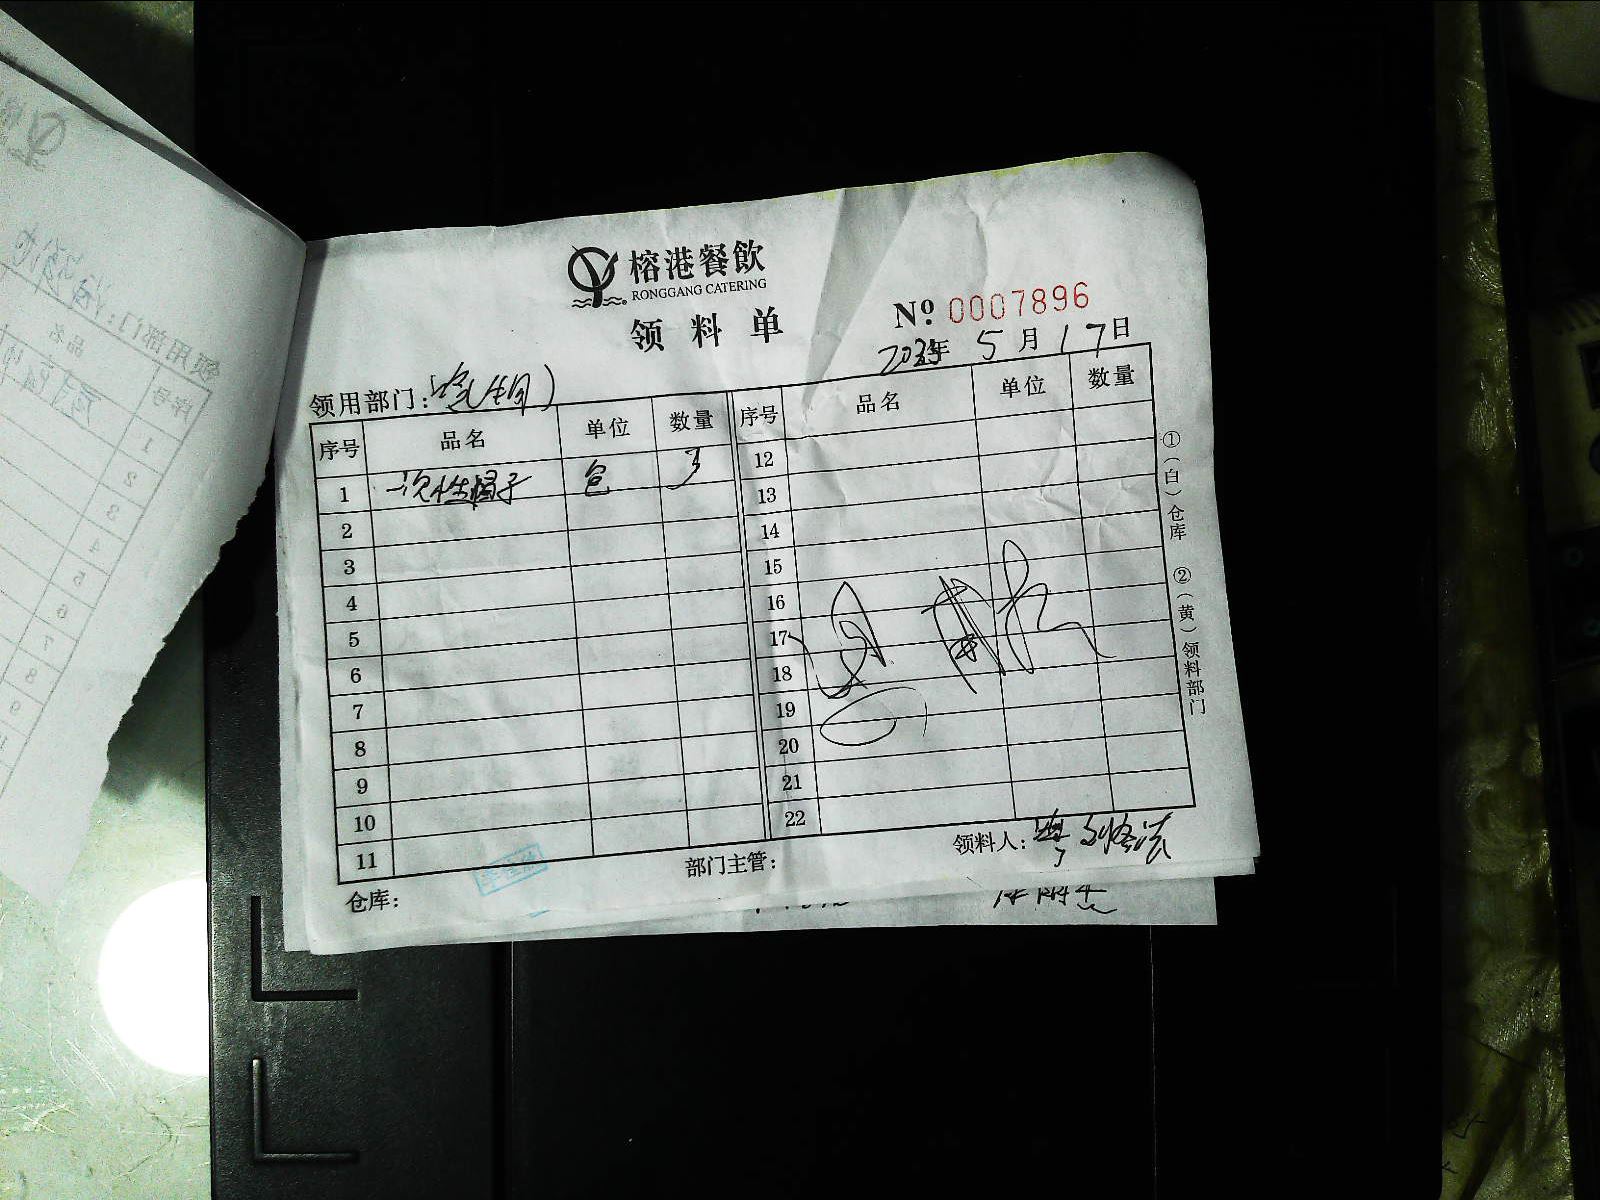 榕港餐飲
RONGGANG CATERING
领料单
Nº 0007896
年 5月17日
领用部门:
序号 品名 单位 数量 序号 品名 单位 数量
1 一次性帽子 包 3 12
2 13
3 14
4 15
5 16
6 17
7 18
8 19
9 20
10 21
11 22
①(白)仓库 ②(黄)领料部门
仓库: 部门主管: 领料人:
领用部门:
序号 品名
1
2
3
4
5
6
7
8
9